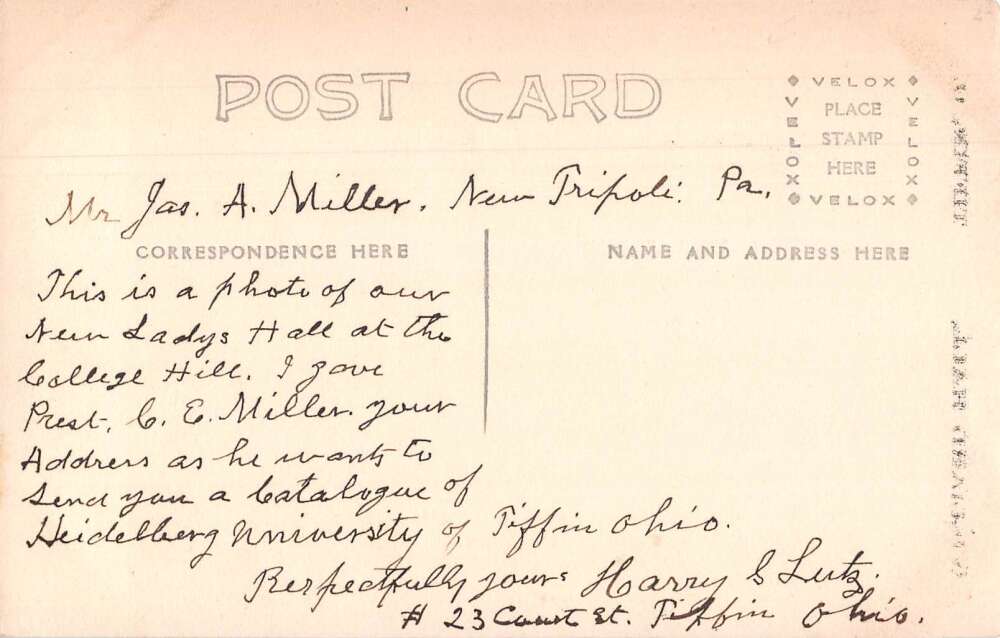 POST CARD
VELOX
VELOX
PLACE
STAMP
HERE
VELOX
VELOX
Mr Jas. A. Miller. New Tripoli. Pa.
CORRESPONDENCE HERE
NAME AND ADDRESS HERE
This is a photo of our
New Ladys Hall at the
College Hill. I gave
Prest. C. E. Miller. your
Address as he wants to
Send you a Catalogue of
Heidelberg University of Tiffin Ohio.
Respectfully yours Harry S Lutz.
# 23 Court St. Tiffin Ohio.